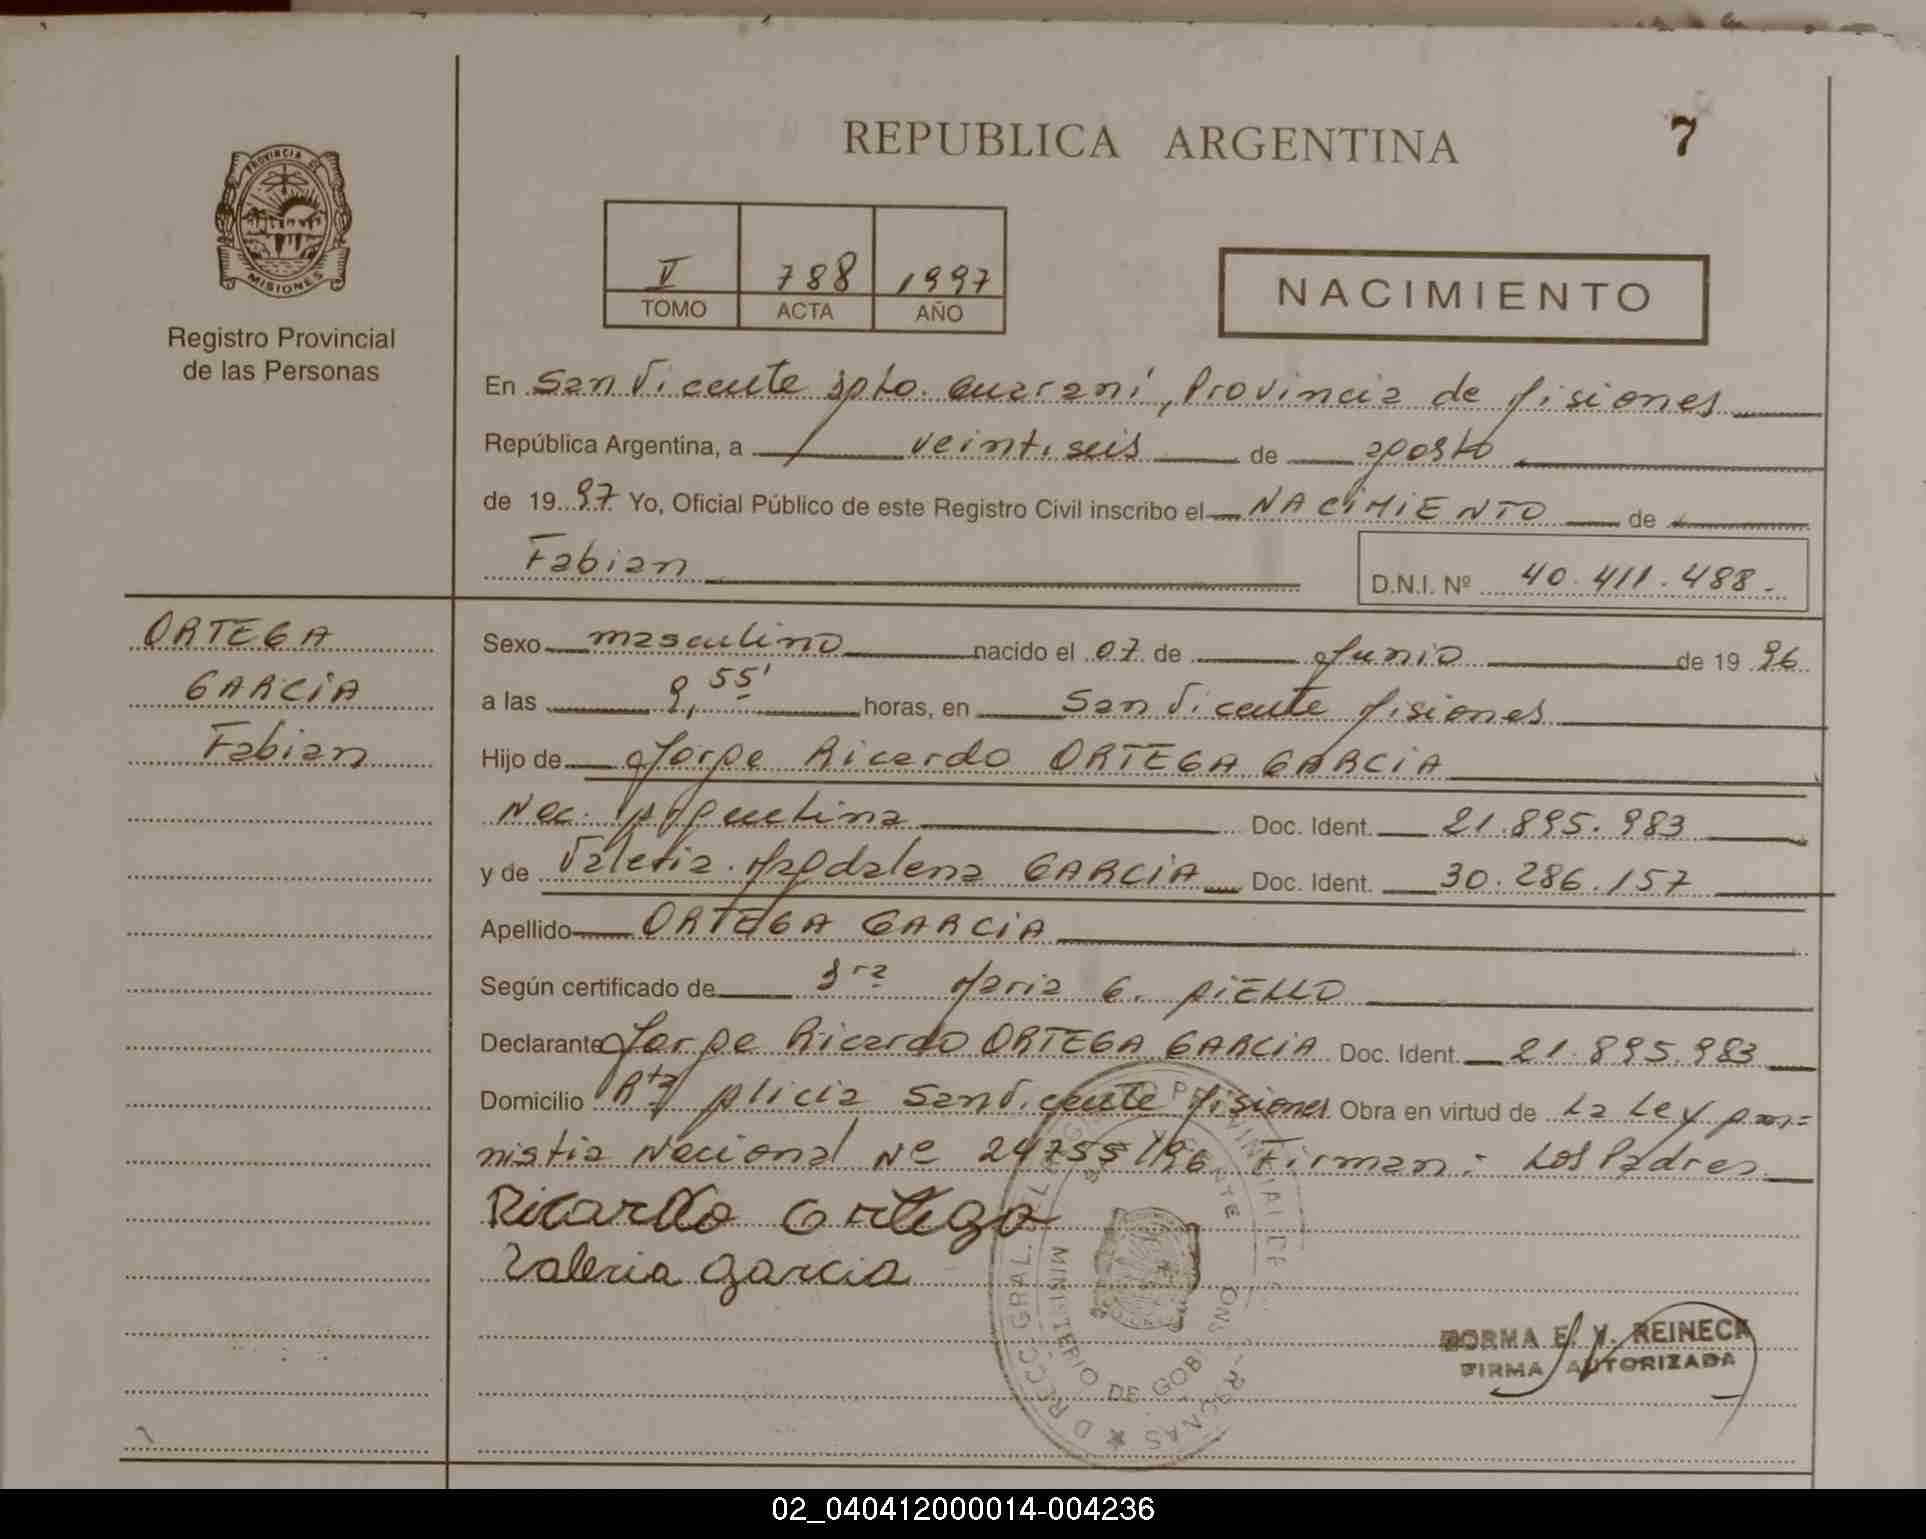 REPUBLICA ARGENTINA
7
PROVINCIA DE
MISIONES
Registro Provincial
de las Personas
V 788 1997
TOMO ACTA AÑO
NACIMIENTO
En San Vicente Dpto. Guarani, Provincia de Misiones
República Argentina, a veintiseis de agosto
de 1997 Yo, Oficial Público de este Registro Civil inscribo el NACIMIENTO de
Fabian
D.N.I. Nº 40.411.488.
ORTEGA
GARCIA
Fabian
Sexo masculino nacido el 07 de Junio de 1996
a las 9,55' horas, en San Vicente Misiones
Hijo de Jorge Ricardo ORTEGA GARCIA
Nac. Argentina Doc. Ident. 21.895.983
y de Valeria Magdalena GARCIA Doc. Ident. 30.286.157
Apellido ORTEGA GARCIA
Según certificado de Dra Maria G.
Declarante Jorge Ricardo ORTEGA GARCIA Doc. Ident. 21.895.983
Domicilio Alicia San Vicente Misiones Obra en virtud de La Ley Am=
nistia Nacional Nº 24755/96 Firman: Los Padres
Ricardo Ortega
Valeria Garcia
MINISTERIO DE GOB
REINECK
FIRMA AUTORIZADA
02_040412000014-004236